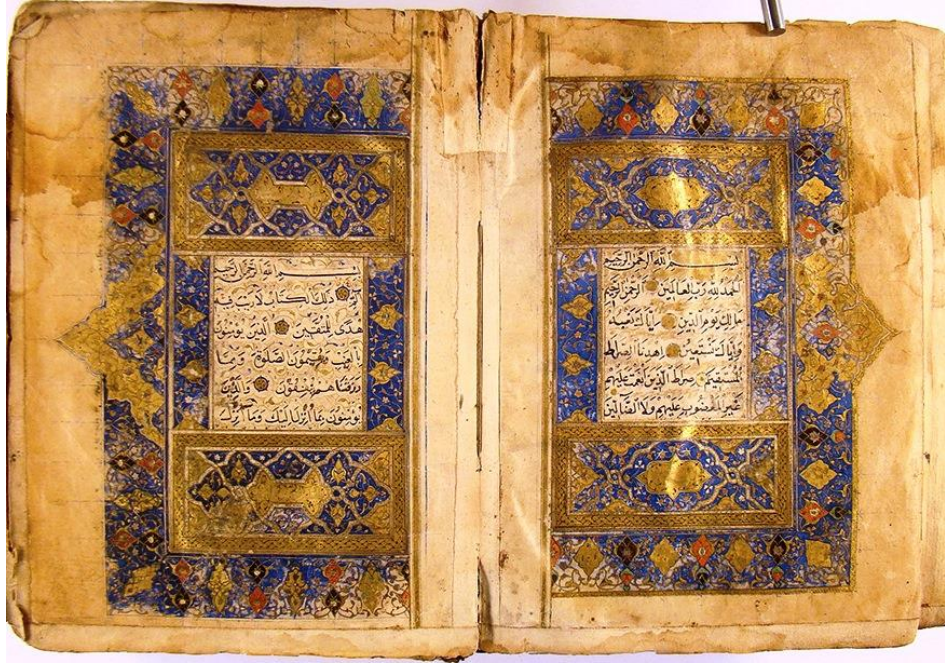 بسم الله الرحمن الرحيم
الحمد لله رب العالمين الرحمن الرحيم
مالك يوم الدين اياك نعبد
واياك نستعين اهدنا الصراط
المستقيم صراط الذين انعمت عليهم
غير المغضوب عليهم ولا الضالين
بسم الله الرحمن الرحيم
الم ذلك الكتاب لا ريب فيه
هدى للمتقين الذين يؤمنون
بالغيب ويقيمون الصلوة ومما
رزقناهم ينفقون والذين
يؤمنون بما انزل اليك وما انزل